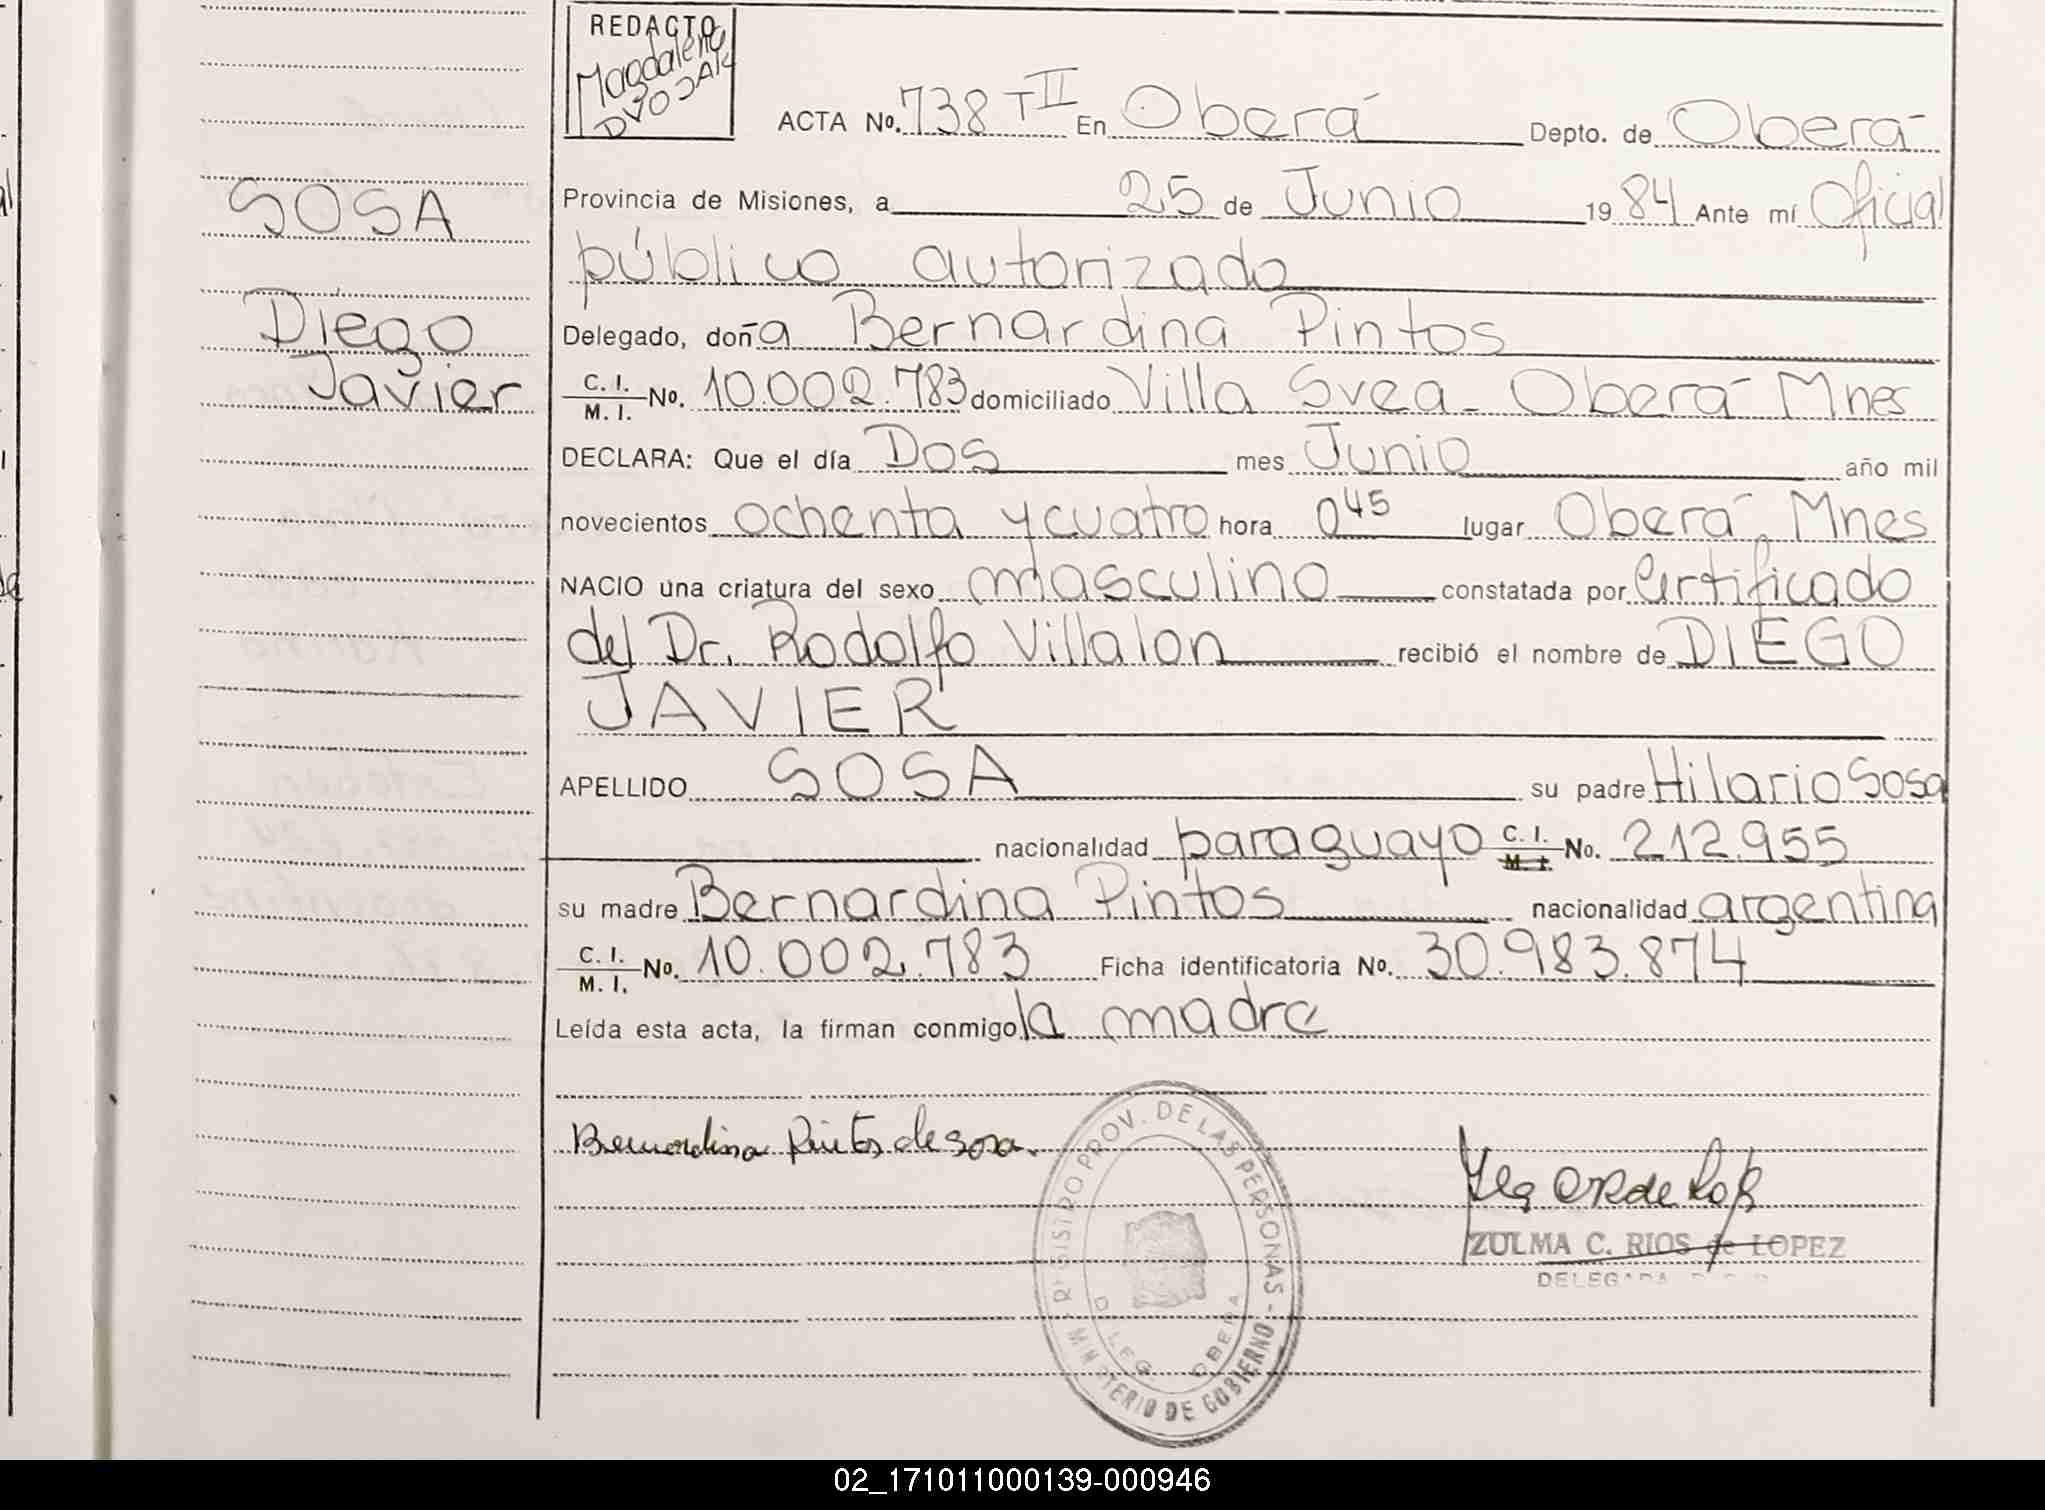 REDACTO
Magdalena
DVOJAK
ACTA No. 738 T II En Oberá Depto. de Oberá
Provincia de Misiones, a 25 de Junio 1984 Ante mí Oficial
público autorizado
SOSA
Diego
Javier
Delegado, doña Bernardina Pintos
C. I. / M. I. No. 10.002.783 domiciliado Villa Svea - Oberá Mnes
DECLARA: Que el día Dos mes Junio año mil
novecientos ochenta y cuatro hora 0 45 lugar Oberá, Mnes
NACIO una criatura del sexo masculino constatada por certificado
del Dr. Rodolfo Villalon recibió el nombre de DIEGO
JAVIER
APELLIDO SOSA su padre Hilario Sosa
nacionalidad paraguayo C. I. / M. I. No. 212.955
su madre Bernardina Pintos nacionalidad argentina
C. I. / M. I. No. 10.002.783 Ficha identificatoria No. 30.983.874
Leída esta acta, la firman conmigo la madre
Bernardina Pintos de Sosa.
REGISTRO PROV. DE LAS PERSONAS - MINISTERIO DE GOBIERNO -
DELEG. OBERA
ZULMA C. RIOS de LOPEZ
DELEGADA
02_171011000139-000946